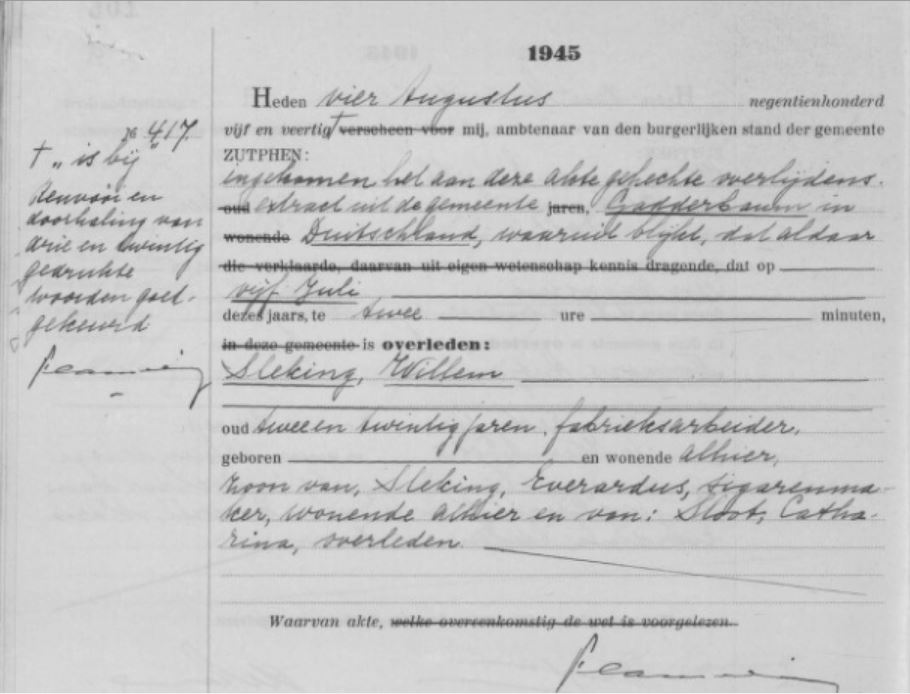 1945
Heden vier Augustus negentienhonderd
vijf en veertig † verscheen voor mij, ambtenaar van den burgerlijken stand der gemeente
ZUTPHEN:
№ 417.
† „ is bij
Renvooi en
doorhaling van
drie en twintig
gedrukte
woorden goed-
gekeurd
ingekomen het aan deze akte gehechte overlijdens-
oud extract uit de gemeente jaren, Gadderbaum in
wonende Duitschland, waaruit blijkt, dat aldaar
die verklaarde, daarvan uit eigen wetenschap kennis dragende, dat op
vijf Juli
dezes jaars, te twee ure minuten,
in deze gemeente is overleden:
Sleking, Willem
oud twee en twintig jaren, fabrieksarbeider,
geboren en wonende alhier,
zoon van, Sleking, Everardus, sigarenma-
ker, wonende alhier en van: Sloot, Catha-
rina, overleden
Waarvan akte, welke overeenkomstig de wet is voorgelezen.